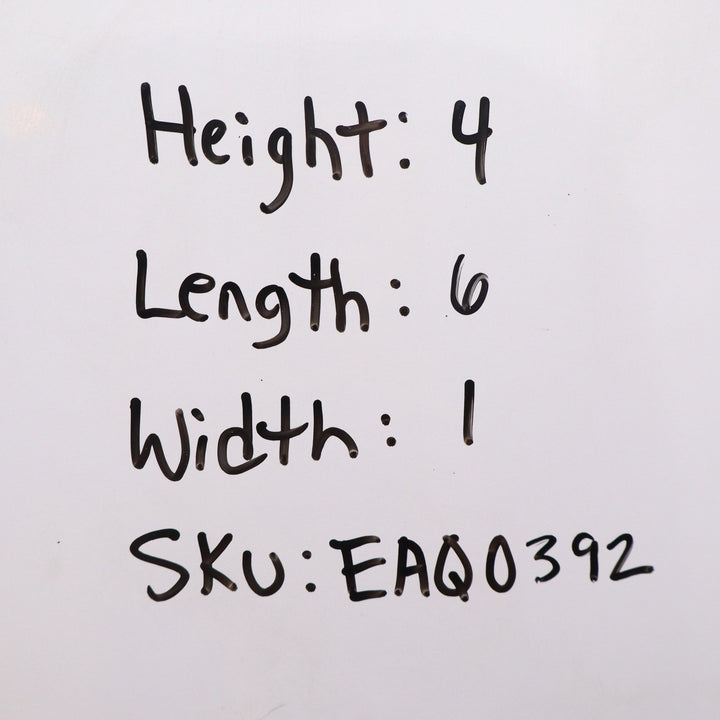 Height: 4
Length: 6
Width: 1
SKU: EAQ0392